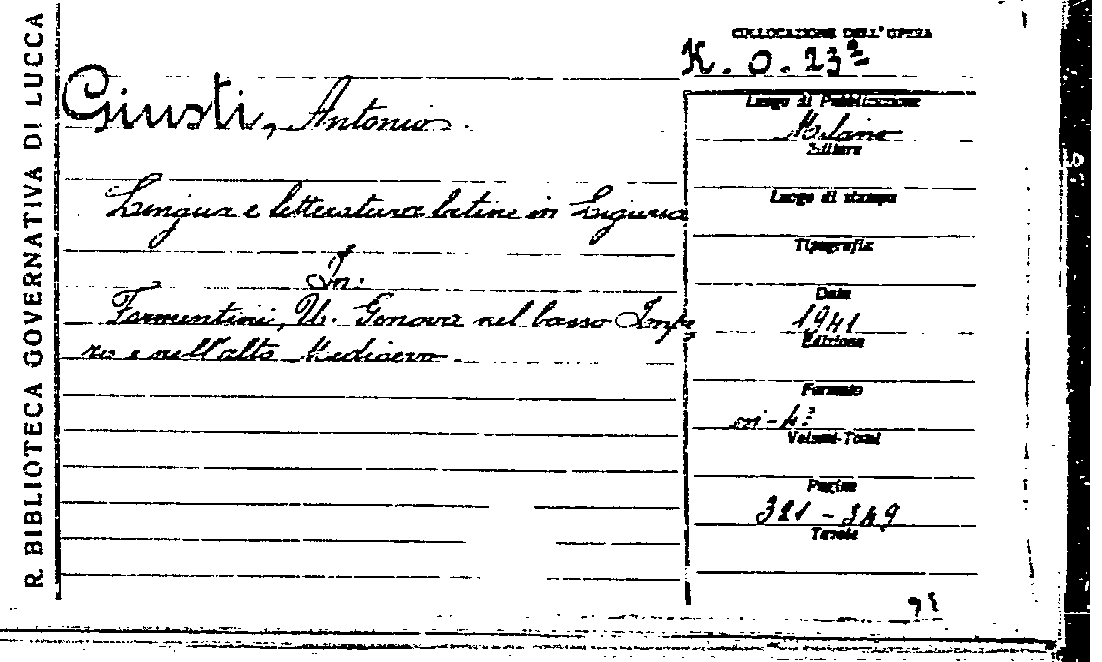 R. BIBLIOTECA GOVERNATIVA DI LUCCA
COLLOCAZIONE DELL'OPERA
K. O. 23ª
Giusti, Antonio.
Lingua e letteratura latine in Liguria
In:
Formentini, U. Genova nel basso Impe
ro e nell'alto Medioevo.
Luogo di Pubblicazione
Milano
Editore
Luogo di stampa
Tipografia
Data
1941
Edizione
Formato
in-4º
Volumi-Tomi
Pagine
321-349
Tavole